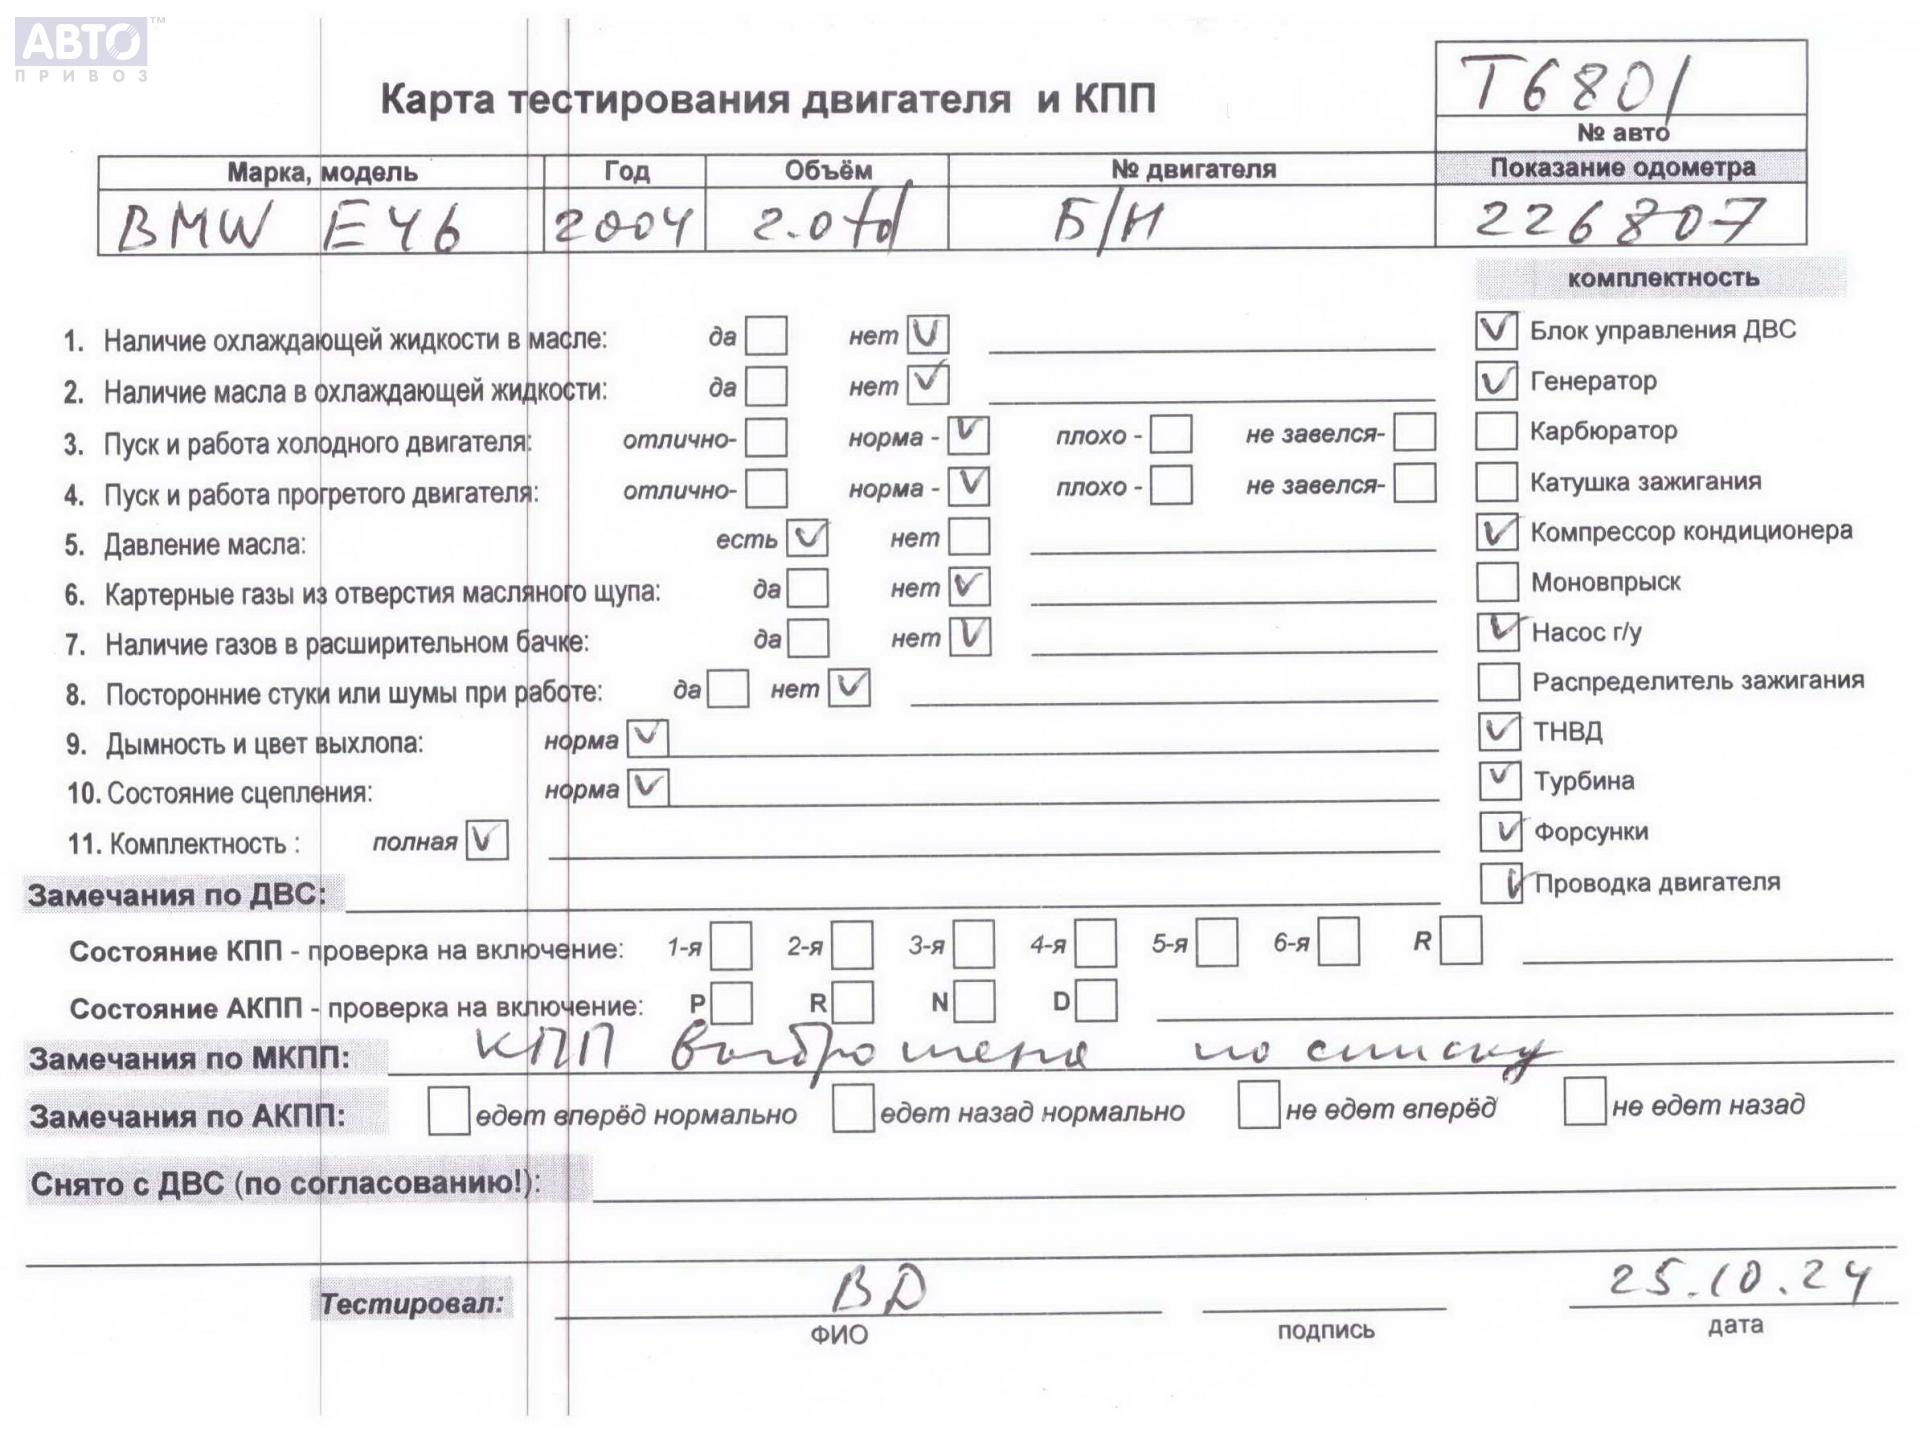 АВТО™
ПРИВОЗ
Карта тестирования двигателя и КПП
Т6801
№ авто
Марка, модель Год Объём № двигателя Показание одометра
BMW E46 2004 2.0td Б/Н 226807
комплектность
1. Наличие охлаждающей жидкости в масле: да нет V
2. Наличие масла в охлаждающей жидкости: да нет V
3. Пуск и работа холодного двигателя: отлично- норма - V плохо - не завелся-
4. Пуск и работа прогретого двигателя: отлично- норма - V плохо - не завелся-
5. Давление масла: есть V нет
6. Картерные газы из отверстия масляного щупа: да нет V
7. Наличие газов в расширительном бачке: да нет V
8. Посторонние стуки или шумы при работе: да нет V
9. Дымность и цвет выхлопа: норма V
10. Состояние сцепления: норма V
11. Комплектность : полная V
V Блок управления ДВС
V Генератор
Карбюратор
Катушка зажигания
V Компрессор кондиционера
Моновпрыск
V Насос г/у
Распределитель зажигания
V ТНВД
V Турбина
V Форсунки
V Проводка двигателя
Замечания по ДВС:
Состояние КПП - проверка на включение: 1-я 2-я 3-я 4-я 5-я 6-я R
Состояние АКПП - проверка на включение: P R N D
Замечания по МКПП: КПП выброшена по списку
Замечания по АКПП: едет вперёд нормально едет назад нормально не едет вперёд не едет назад
Снято с ДВС (по согласованию!):
Тестировал: ВД 25.10.24
ФИО подпись дата